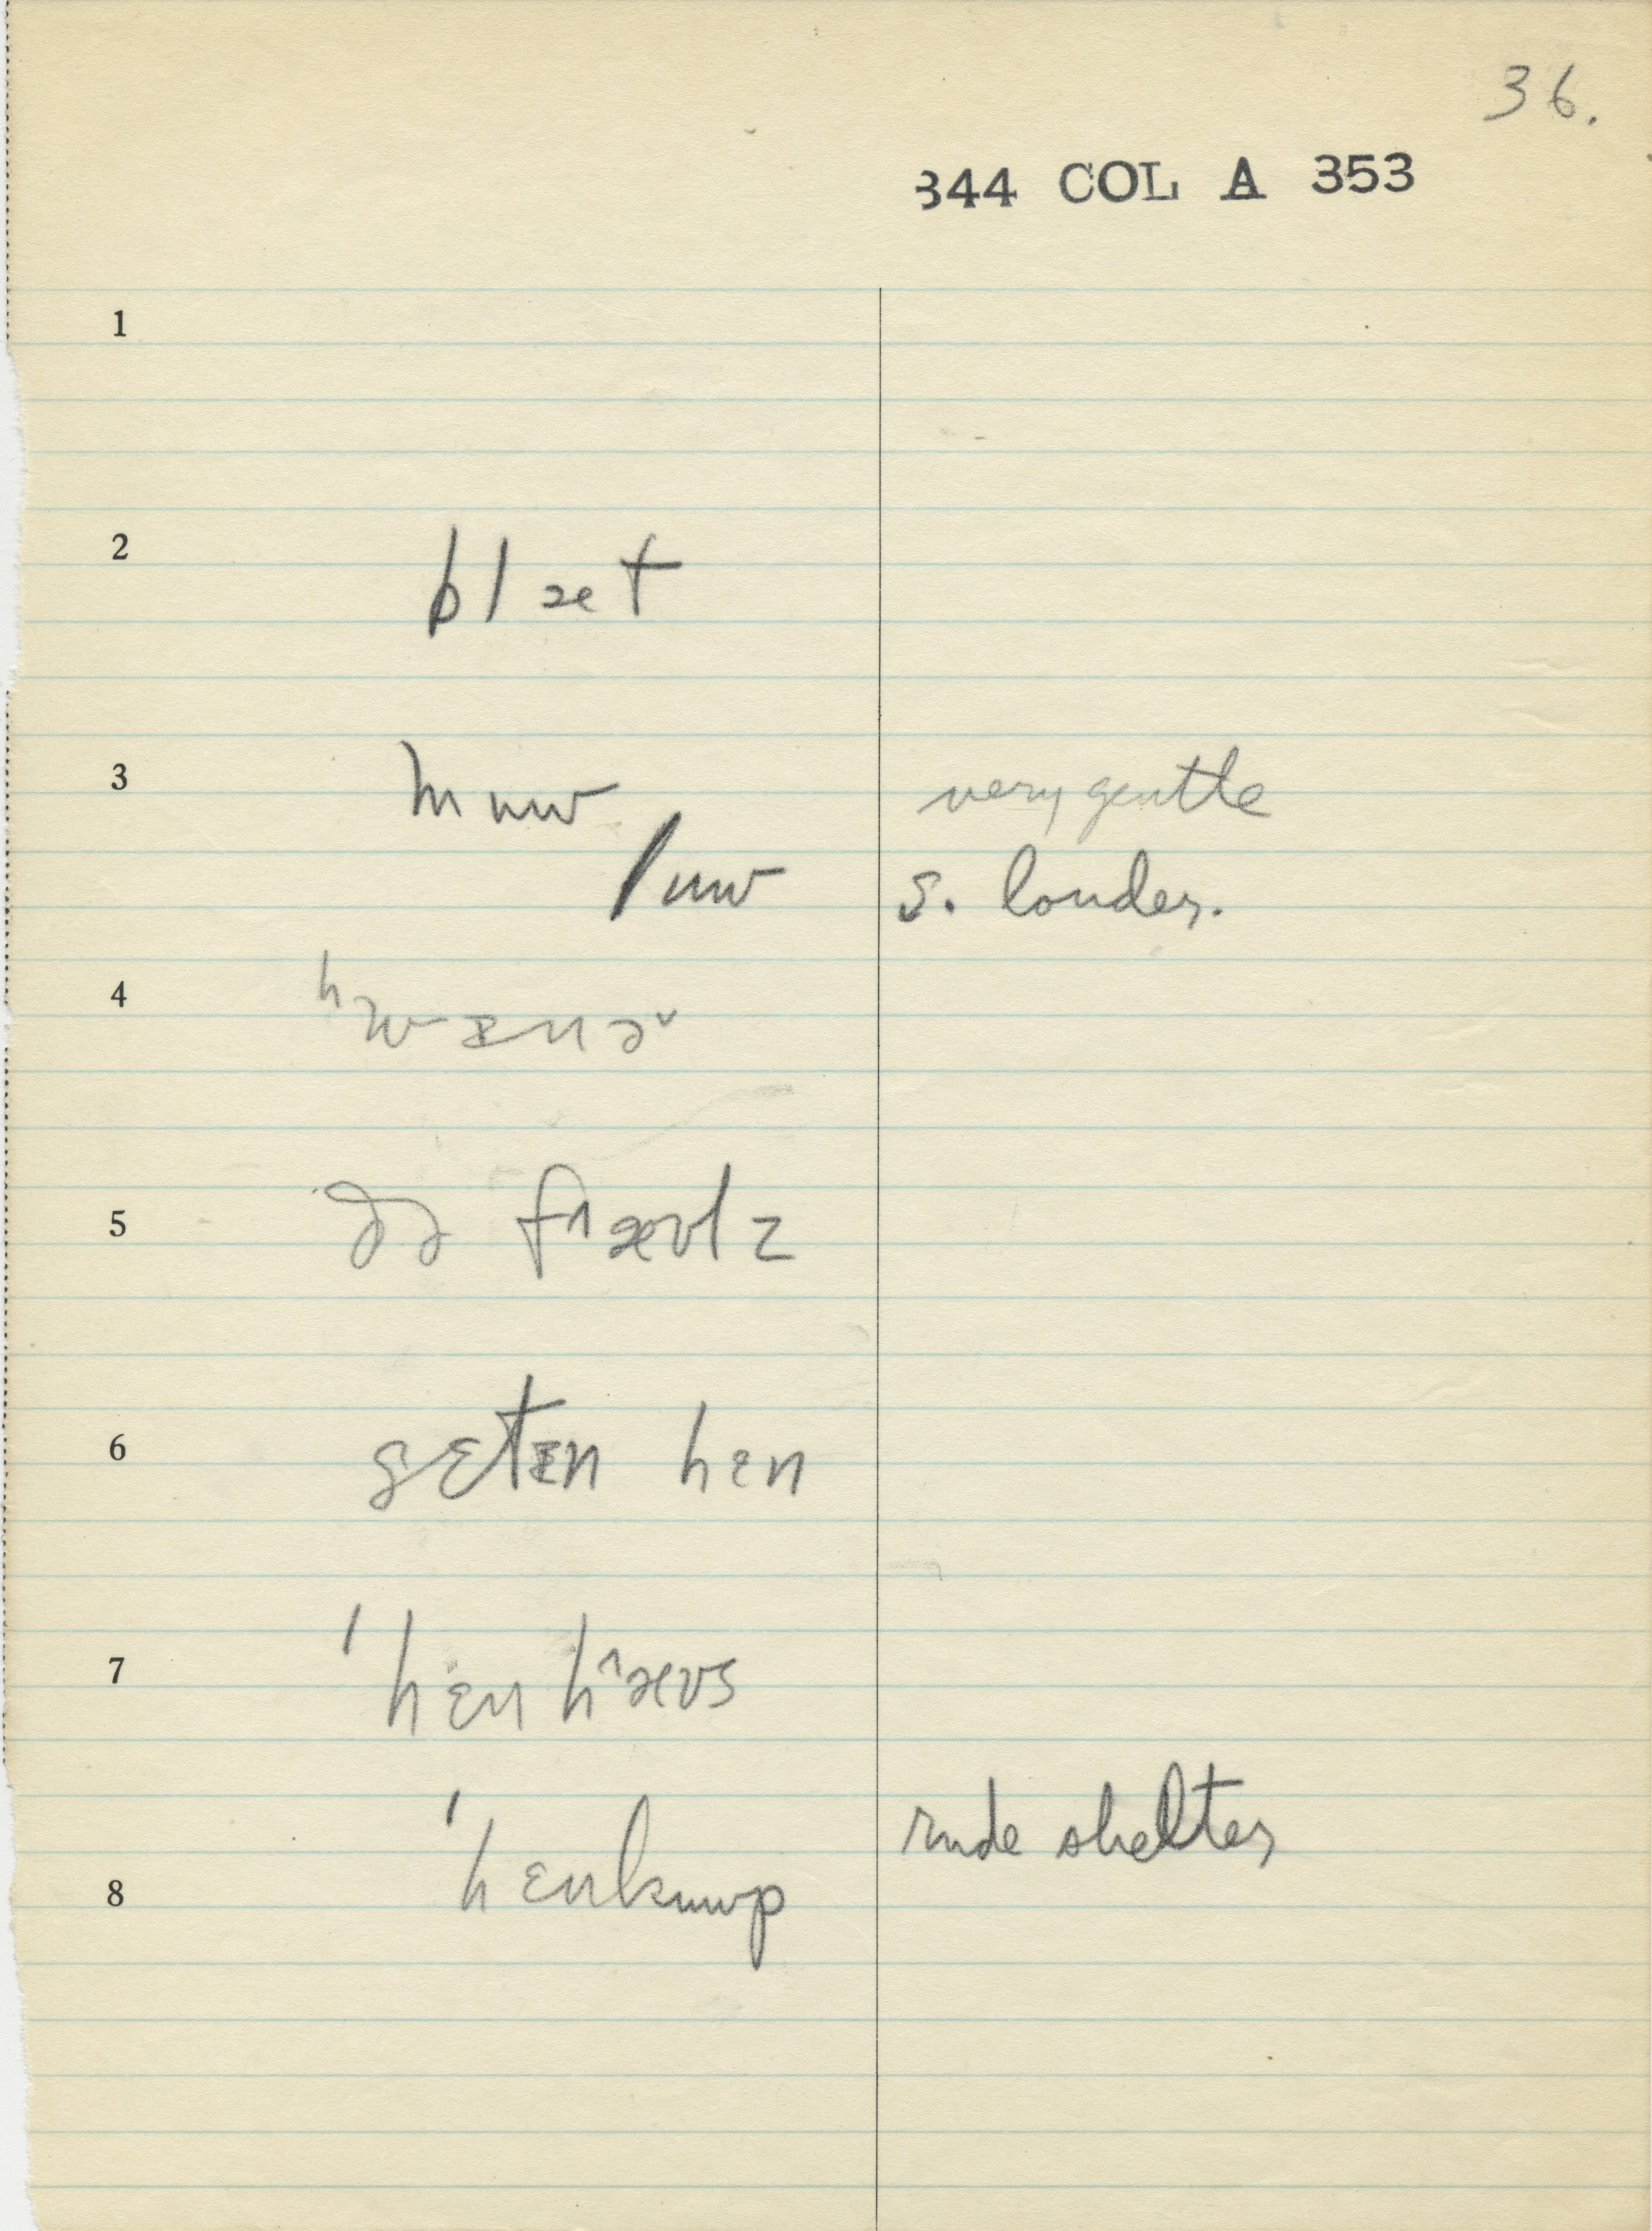 36.
344 COL A 353
1
2 blæt
3 mɯw very gentle
lɯw s. louder.
4 ʰwᵻnə˅
5 ðə f^æʊlz
6 sɛtᵻn hɛn
7 'hɛn h^æʊs
'hɛnkɯwp rude shelter
8